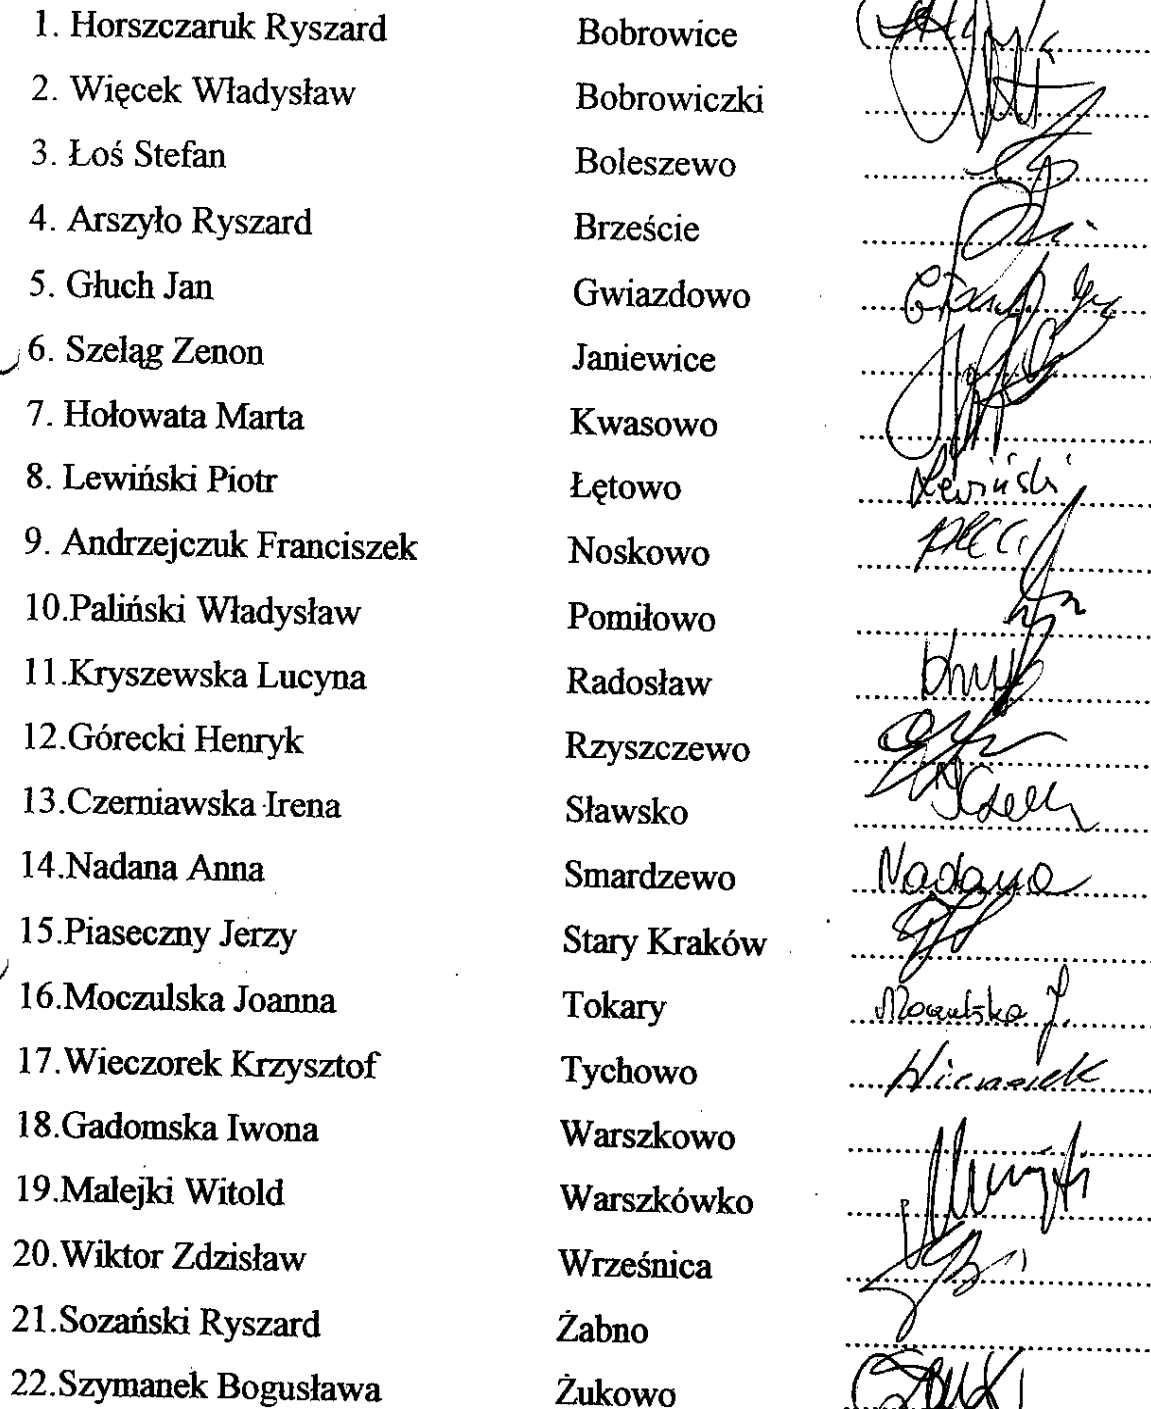 1. Horszczaruk Ryszard Bobrowice
2. Więcek Władysław Bobrowiczki
3. Łoś Stefan Boleszewo
4. Arszyło Ryszard Brzeście
5. Głuch Jan Gwiazdowo
6. Szeląg Zenon Janiewice
7. Hołowata Marta Kwasowo
8. Lewiński Piotr Łętowo Lewiński
9. Andrzejczuk Franciszek Noskowo
10.Paliński Władysław Pomiłowo
11.Kryszewska Lucyna Radosław
12.Górecki Henryk Rzyszczewo
13.Czerniawska Irena Sławsko
14.Nadana Anna Smardzewo Nadana
15.Piaseczny Jerzy Stary Kraków
16.Moczulska Joanna Tokary Moczulska J.
17.Wieczorek Krzysztof Tychowo
18.Gadomska Iwona Warszkowo
19.Malejki Witold Warszkówko
20.Wiktor Zdzisław Wrześnica
21.Sozański Ryszard Żabno
22.Szymanek Bogusława Żukowo